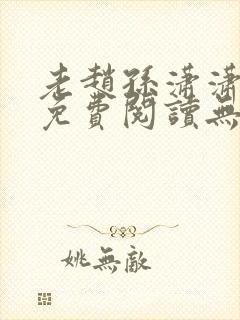 老趙孫瀟瀟
免費閱讀無
姚無敵